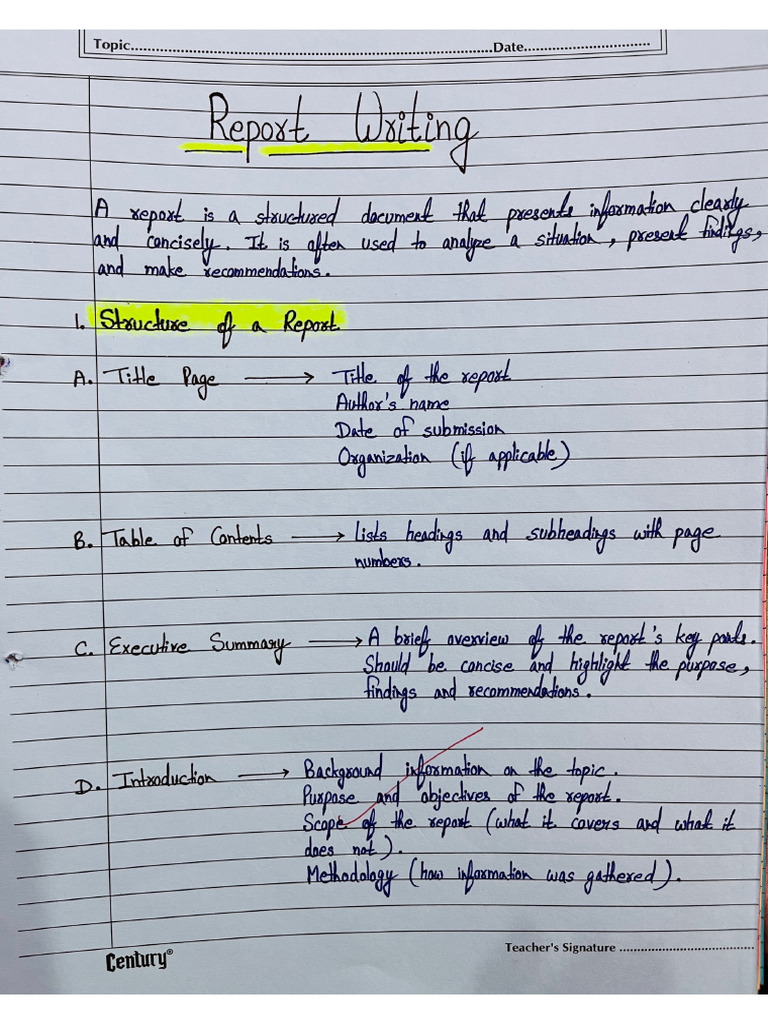 Topic.......................................................................................Date...............................
Report Writing
A report is a structured document that presents information clearly
and concisely. It is often used to analyze a situation, present findings,
and make recommendations.
1. Structure of a Report
A. Title Page → Title of the report
Author's name
Date of submission
Organization (if applicable)
B. Table of Contents → Lists headings and subheadings with page
numbers.
C. Executive Summary → A brief overview of the report's key points.
Should be concise and highlight the purpose,
findings and recommendations.
D. Introduction → Background information on the topic.
Purpose and objectives of the report.
Scope of the report (what it covers and what it
does not).
Methodology (how information was gathered).
Teacher's Signature ....................................
Century®